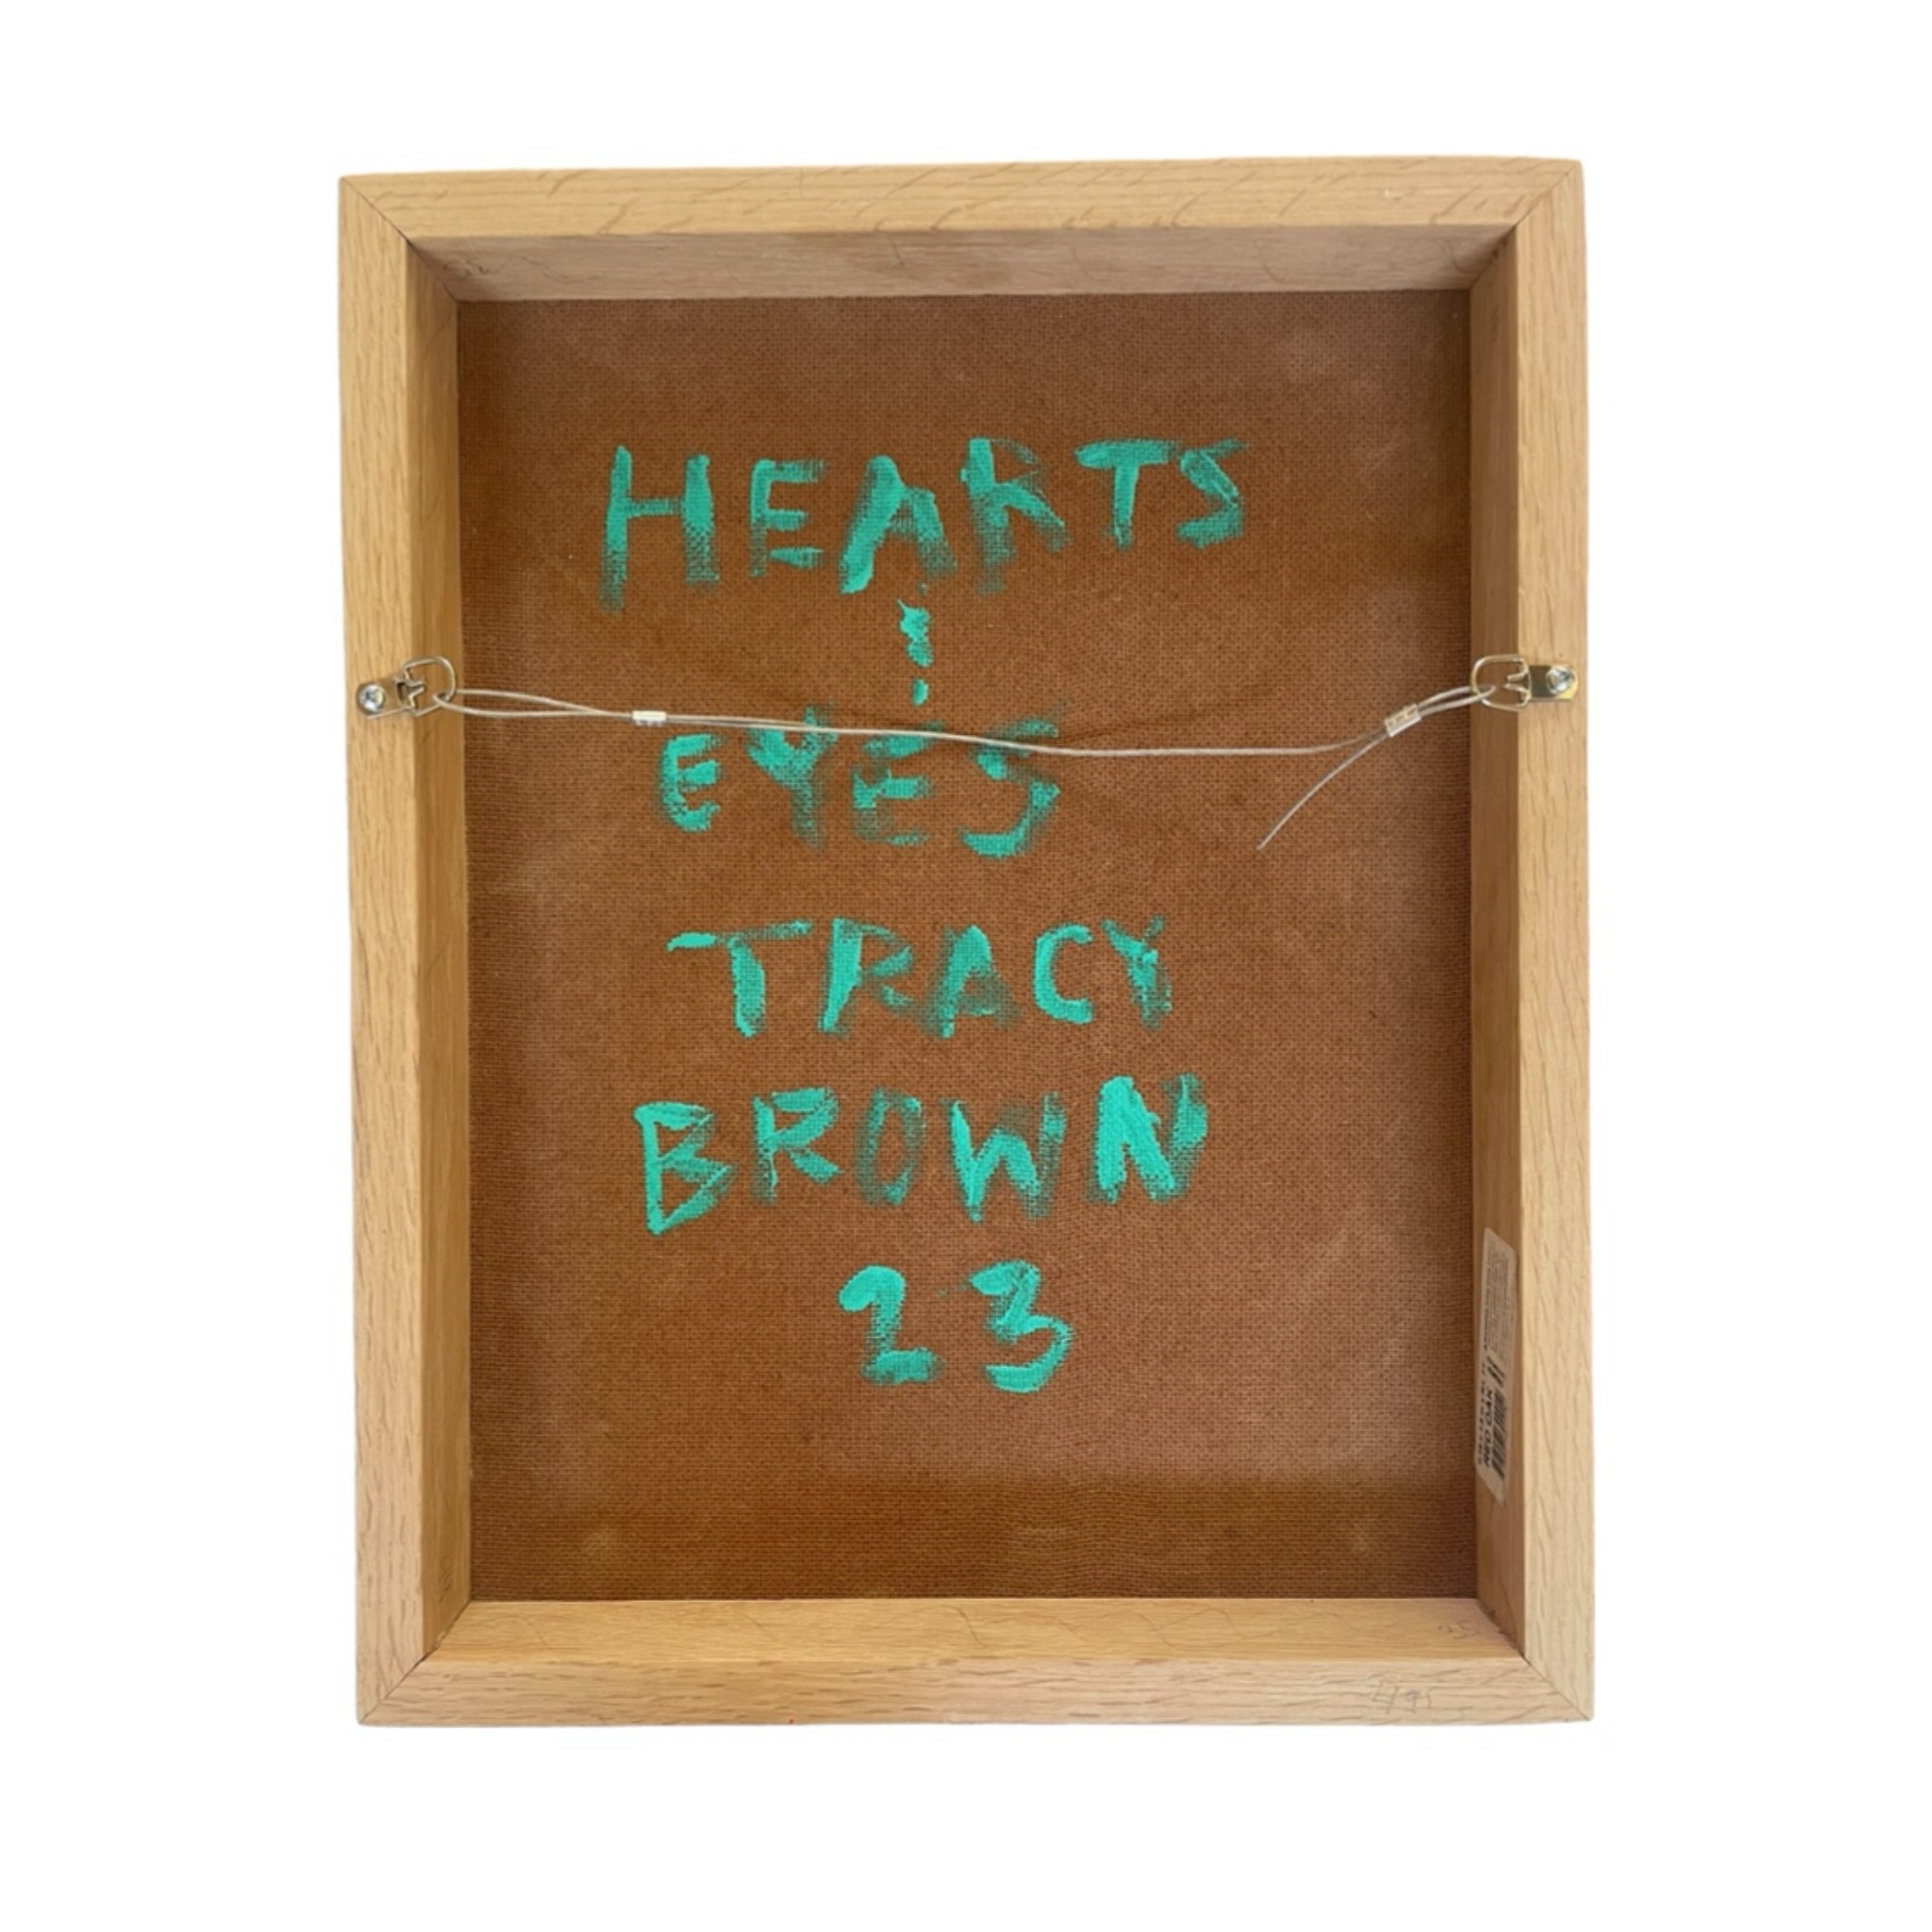 HEARTS
EYES
TRACY
BROWN
23
OAK